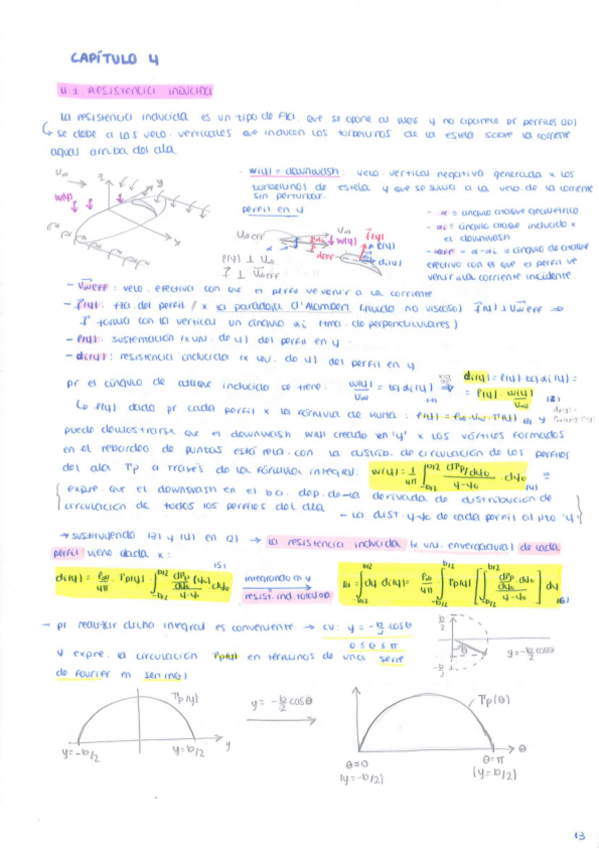 CAPÍTULO 4
RESISTENCIA INDUCIDA
La resistencia inducida es un tipo de que se opone al y no aparece pr perfiles (2D)
↳ se debe a las velo. verticales que inducen los torbellinos de la estela sobre la corriente
aguas arriba del ala.
- w(y) = downwash: velo. vertical negativa generada x los
torbellinos de estela y que se suma a la velo. de la corriente
sin perturbar.
perfil en y
- α = ángulo ataque geométrico
- αi = ángulo ataque inducido x
el downwash
- αeff = α - αi = ángulo de ataque
efectivo con el que el perfil ve
venir a la corriente incidente.
- V∞eff: velo. efectiva con que el perfil ve venir a la corriente
- f(y): fza. del perfil / x la paradoja d'Alambert (fluido no viscoso) f(y) ⊥ V∞eff ⇒
f forma con la vertical un ángulo αi (de perpendiculares)
- l(y): sustentación (x un. de y) del perfil en y.
- di(y): resistencia inducida (x un. de y) del perfil en y.
pr el ángulo de ataque inducido se tiene: w(y)/U∞ = tg αi(y) di(y) = l(y) tg αi(y) =
= l(y) w(y)/U∞ (2)
↳ l(y) dado pr cada perfil x la fórmula de Kutta: l(y) = ρ∞ U∞ Γ(y) y
puede demostrarse que el downwash w(y) creado en 'y' x los vórtices formados
en el rebordeo de puntas está rela. con la distrib. de circulación de los perfiles
del ala Γp a través de la fórmula integral: w(y) = 1/4π ∫-b/2^b/2 (dΓp/dy0)/(y-y0) · dy0 (4)
expre. que el downwash en el dep. de - la derivada de distribución de
circulación de todos los perfiles del ala
- la dist. y-y0 de cada perfil al pto 'y'
→ sustituyendo (3) y (4) en (2) → la resistencia inducida (x un. envergadura) de cada
perfil viene dada x: (5)
di(y) = ρ∞/4π · Γp(y) · ∫-b/2^b/2 (dΓp/dy0 (y0))/(y-y0) dy0
integrando en y
resist. ind. total (3D)
Di = ∫-b/2^b/2 dy di(y) = ρ∞/4π ∫-b/2^b/2 Γp(y) [∫-b/2^b/2 (dΓp/dy0 dy0)/(y-y0)] dy (6)
→ pr realizar dicha integral es conveniente → cv: y = -b/2 cosθ
0 ≤ θ ≤ π
y expre. la circulación Γp(y) en términos de una serie
de Fourier en sen(nθ)
y = -b/2 cosθ
Γp(y)
y = -b/2 cosθ
Γp(θ)
y=-b/2 y=b/2 y
θ=0 θ=π θ
(y=-b/2) (y=b/2)
13